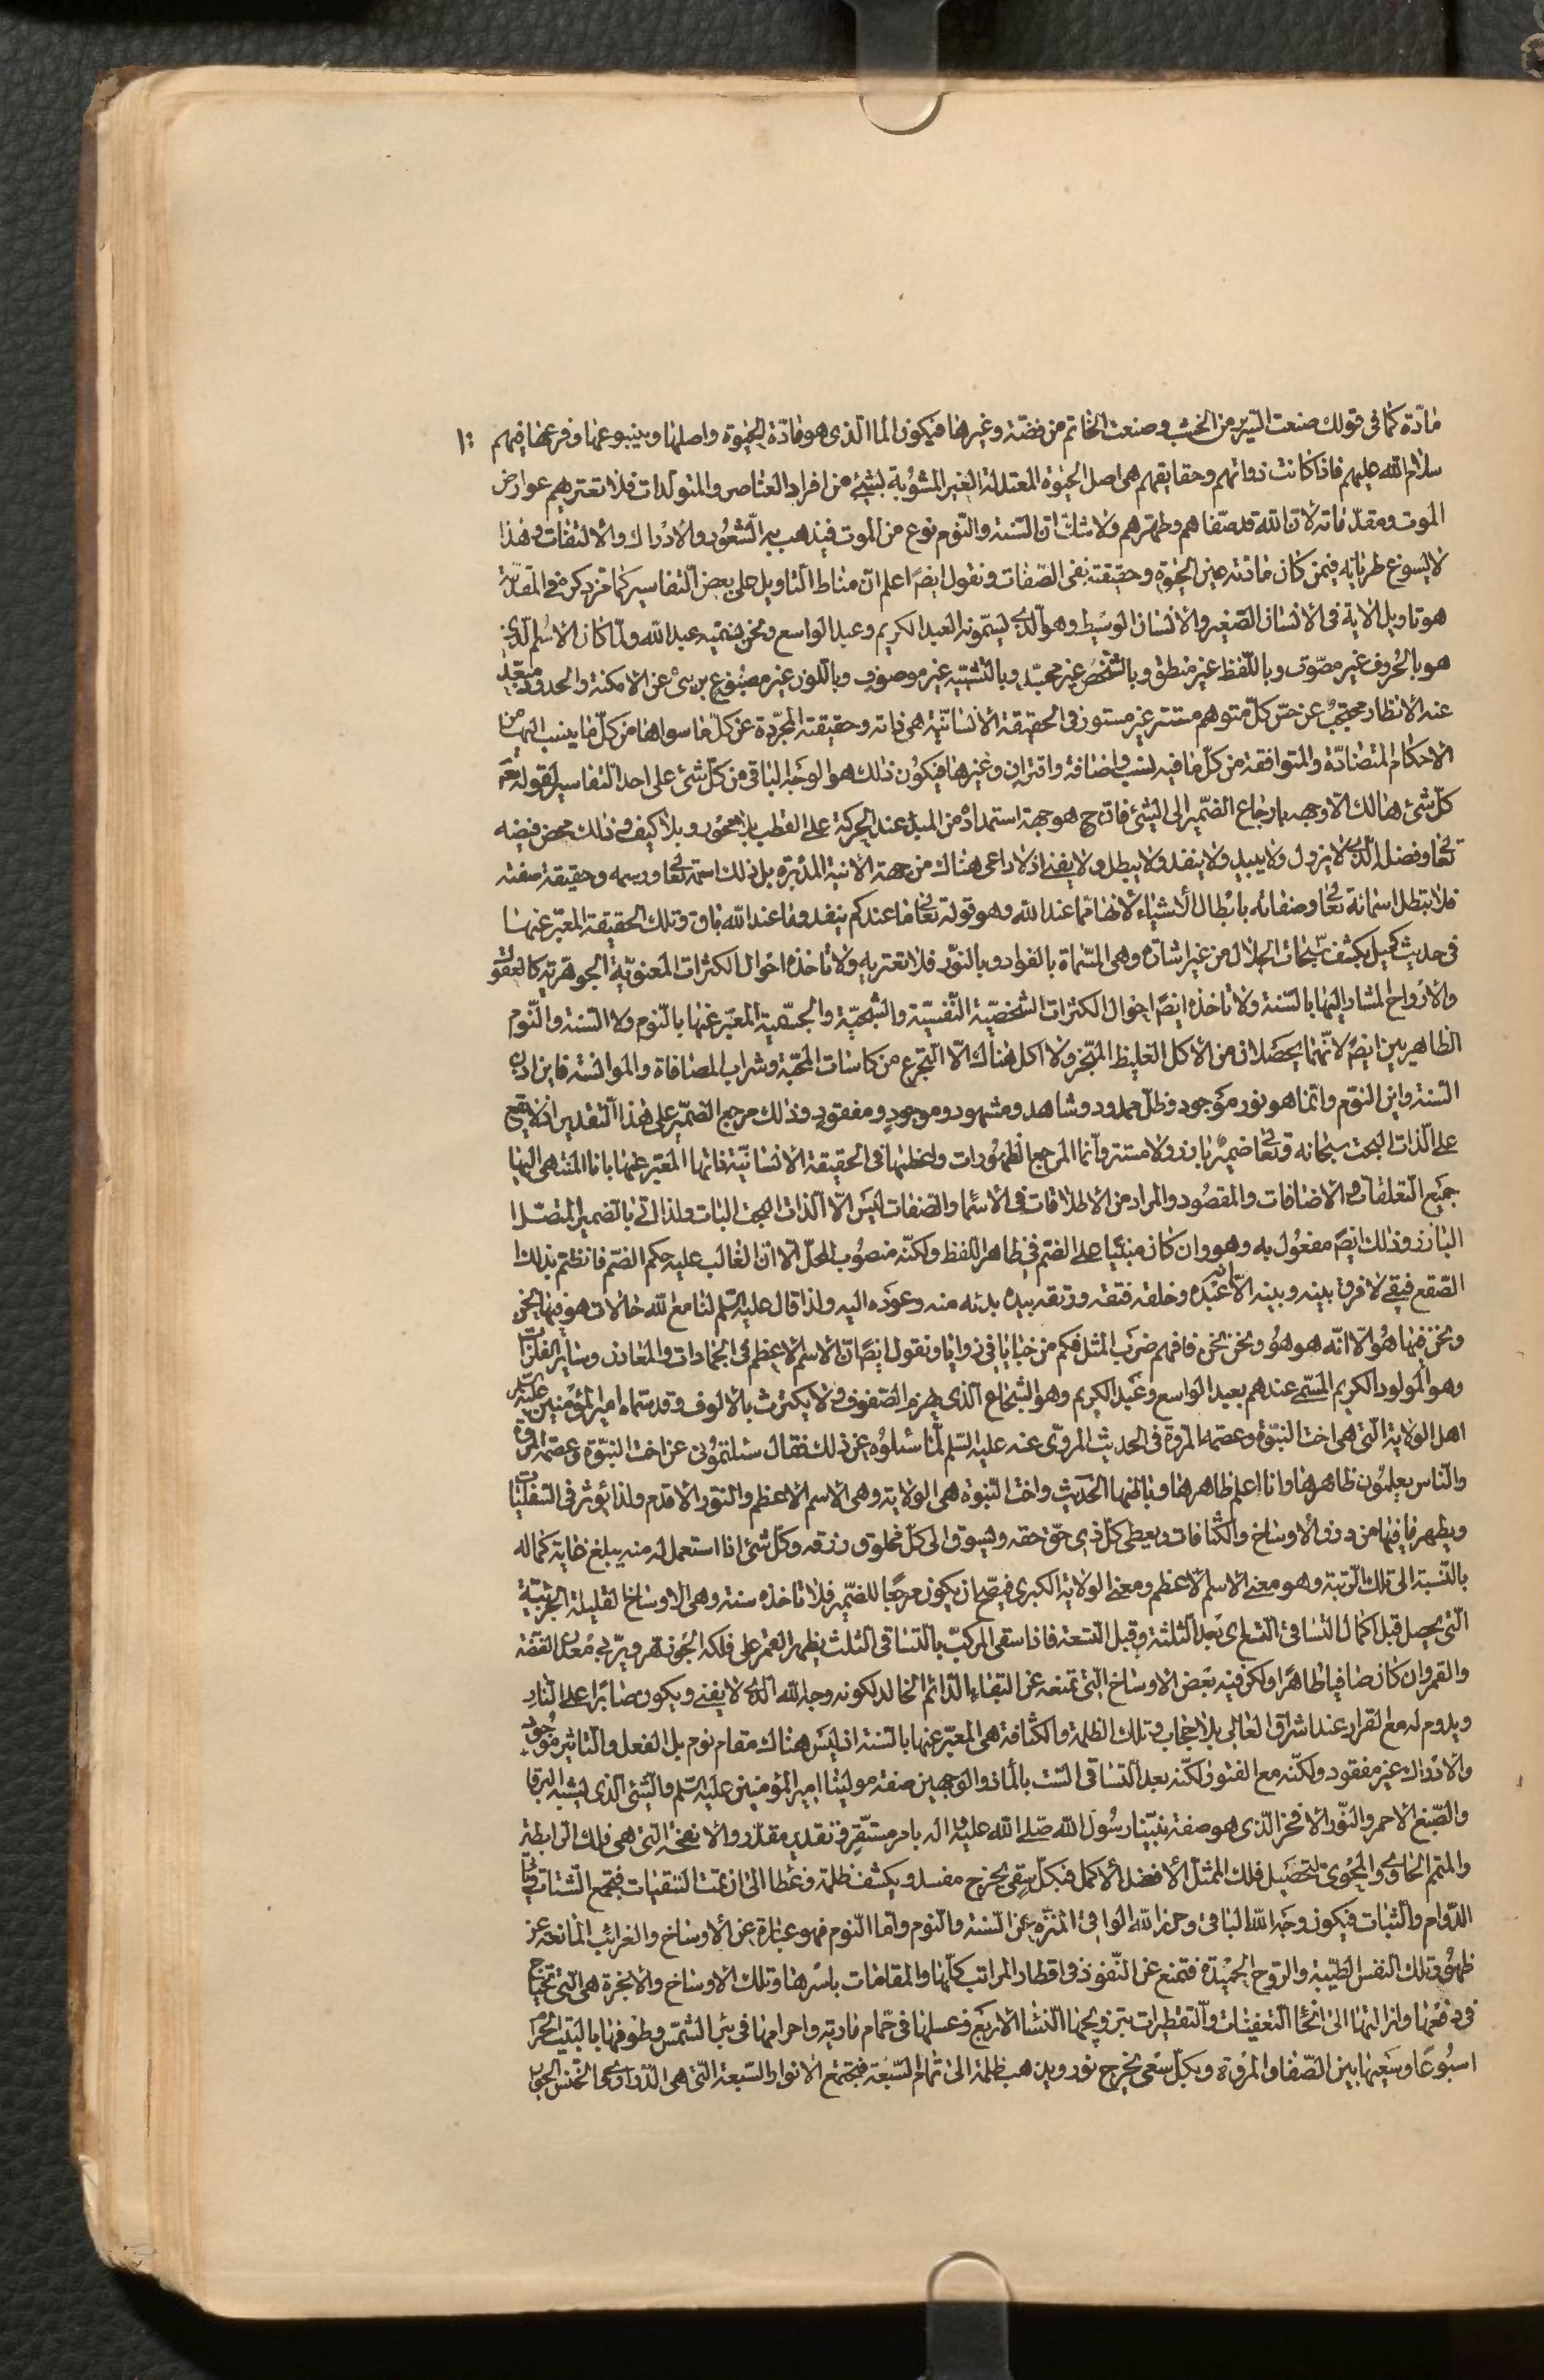 مادّة كما فى قولك صنعت السّرير من الخشب وصنعت الخاتم من فضّة وغيرها فيكون الماء الّذى هو مادّة الحيوة واصلها وينبوعها وفرعها فيهم ١٠
سلام الله عليهم فاذا كانت ذواتهم وحقايقهم هى اصل الحيوة المعتدلة الغير المشوبة بشىء من افراد العناصر والمتولدات فلا تعتريهم عوارض
الموت ومقدّماته لان الله قد صفاهم وطهرهم ولا شك ان السّنة والنّوم نوع من الموت فيذهب بهما الشعور والادراك والالتفات وهذا
لا يسوغ طريانه فيمن كان مادّته عين الحيوة وحقيقته نفى الصّفات ونقول ايضًا اعلم ان مناط التاويل على بعض التفاسير كما مرّ ذكره فى المقدّمة
هو تاويل الاية فى الانسان الصّغير والانسان الوسيط وهو الّذى يسمّونه العبد الكريم وعبد الواسع ونحن نسمّيه عبد الله ولمّا كان الاسم الّذى
هو بالحُروف غير مصوّت وباللّفظ غير منطق وبالشّخص غير مجسّد وبالتشبيه غير موصوف وباللون غير مصبوغ برىء عن الامكنة والحدود مبعّد
عنه الاقطار محتجب عن حسّ كلّ متوهم مستتر غير مستور فى الحقيقة الانسانيّة هى ذاته وحقيقته المجرّدة عن كلّ ما سواها من كلّ ما ينسب اليها من
الاحكام المتضادّة والمتوافقة من كلّ ما فيه نسب واضافة واقتران وغيرها فيكون ذلك هو الوجه الباقى من كلّ شىء على احد التفاسير لقوله تعم
كلّ شىء هالك الّا وجهه بارجاع الضّمير الى الشىء فانّه ح هو جهة استمداده من المبدء عند الحركة على القطب بلا محور وبلا كيف وذلك محض فيضه
تعالى وفضله الّذى لا يزول ولا يبيد ولا ينفد ولا يبطل ولا يفنى اذ لا داعى هناك من جهة الانية المدبرة بل ذلك اسمه تعالى ورسمه وحقيقة صفته
فلا تبطل اسمائه تعالى وصفاته بابطال الاشياء لانها ممّا عند الله وهو قوله تعالى ما عندكم ينفد وما عند الله باق وتلك الحقيقة المعبّر عنها
فى حديث كميل بكشف سُبحات الجلال من غير اشارة وهى المسّماة بالفواد وبالنّور فلا تعتريه ولا تاخذه احوال الكثرات المعنويّة الجوهريّة كالعقول
والارواح المشار اليها بالسّنة ولا تاخذه ايضًا احوال الكثرات الشخصّية النّفسيّة والشبحيّة والجسميّة المعبّر عنها بالنّوم ولا السّنة والنّوم
الظاهريين ايضًا لانّهما يحصلان من الاكل الغليظ المبخّر ولا اكل هناك الّا التجرع من كاسات المحبّة وشراب المصافاة والموانسة فاين اذن
السّنة واين النّوم وانّما هو نور موجود وظلّ ممدود وشاهد ومشهود وموجود ومفقود وذلك مرجع الضّمير على هذا التقدير اذ لا يقع
على الذات البحت سبحانه وتعالى ضمير بارز ولا مستتر وانّما المرجع الظهورات واعظمها فى الحقيقة الانسانيّة فانّها المعبّر عنها بانا المنتهى اليها
جميع التعلقات والاضافات والمقصود والمراد من الاطلاقات فى الاسماء والصّفات ليس الّا الذات البحت البات ولذا اتى بالضّمير المتصل
البارز وذلك ايضًا مفعُول به وهو وان كان مبنيًا على الضّم فى ظاهر اللفظ ولكنّه منصُوب المحلّ الّا ان الغالب عليه حكم الضّم فانظم بذلك
الصّقع فبقى لا فرق بينه وبينه الّا انّه عبده وخلقه فتقه ورتقه بيده بدئه منه وعوده اليه ولذا قال عليه السّلم لنا مع الله حالات هو فيها نحن
ونحن فيها هُو الّا انّه هو هُو ونحن نحن فافهم ضرَب المثل فكم من خبايا فى زوايا ونقول ايضًا انّ الاسم الاعظم فى الجمادات والمعادن وساير الفلزّات
وهو المولود الكريم المسّمى عندهم بعبد الواسع وعَبد الكريم وهو الشّجاع الّذى يهزم الصّفوف ولا يكترث بالالوف وقد سمّاه امير المؤمنين عليه السلم
اهل الولاية الّتى هى اخت النبوّة وعصمة المروة فى الحديث المروّى عنه عليه السّلم لمّا سئلوُه عن ذلك فقال سئلتمُونى عن اخت النبوّة وعصمة المروّة
والنّاس يعلمُون ظاهرها وانا اعلم ظاهرها وباطنها الحَديث واخت النّبوة هى الولاية وهى الاسم الاعظم والنّور الاقدم ولذا يؤثر فى السّفليّات
ويطهر ما فيها من درن الاوساخ والكثافات ويعطى كلّ ذى حقّ حقه ويسوق الى كلّ مخلوق رزقه وكلّ شىء اذا استعمل له منه يبلغ غاية كماله
بالنّسبة الى تلك الرّتبة وهو معنى الاسم الاعظم ومعنى الولاية الكبرى فيصّح ان يكون مرجعًا للضّمير فلا تاخذه سنة وهى الاوساخ القليلة الجزئيّة
الّتى يحصل قبل اكمال التساقى التسع اى بعد الثلثة وقبل التسعة فاذا سقى المركّب بالتساقى الثلث يظهر القمر على فلكه الجوزهر ويربى مُعدل الفضّة
والقمر وان كان صافيا طاهرًا ولكن فيه بَعض الاوساخ الّتى تمنعه عن البَقاء الدّائم الخالد لكونه وجه الله الّذى لا يفنى ويكون صابرًا على النّار
ويدوم له مع القرار عند اشراق العالى بلا حجاب وتلك الظلمة والكثافة هى المعبّر عنها بالسّنة اذ ليَس هناك مقام نوم بل الفعل والتاثير موجُود
والادراك غير مفقود ولكنّه مع الفتور لكنّه بعد التساقى السّت بالماء ذو الوجهين صفة مولينا امير المؤمنين عليه السّلم والشّىء الّذى يشبه البرقا
والصّبغ الاحمر والنّور الافخر الّذى هو صفة نبيّنا رسُول الله صلّى الله عليه واله بامر مستّقر فى تقدير مقدّر والانفحة الّتى هى فلك الرابطة
والمتمم الحاوى والمحوى لتحصيل فلك الممثل الافضل الاكمل فبكلّ سقى يخرج مفسد ويكشف ظلمة وغطاء الى ان تمت السّقيات فجمع الشّتات واتى
الدّوام والثبات فيكون وجه الله الباقى وحرز الله الواقى المنزّه عن السّنة والنّوم وامّا النّوم فهو عبارة عن الاوساخ والغرائب المانعة عن
ظهُور تلك النفس الطيّبة والرّوح الحميدة فتمنع عن النّفوذ فى اقطار المراتب كلّها والمقامات باسْرها وتلك الاوساخ والابخرة هى الّتى تحتاج
فى دفعها وازالتها الى انحاء التعفينات والتقطيرات بتزويجها النساء الاربع وغسلها فى حمّام مارية واحرامها فى بئر الشّمس وطوفها بالبَيت الحرَام
اسبُوعًا وسَعيها بين الصّفا والمروة وبكلّ سَعى يخرج نور ويذهب ظلمة الى تمام السّبعة فيجتمع الانوار السّبعة الّتى هى الدّرارى الخنّس الجوار